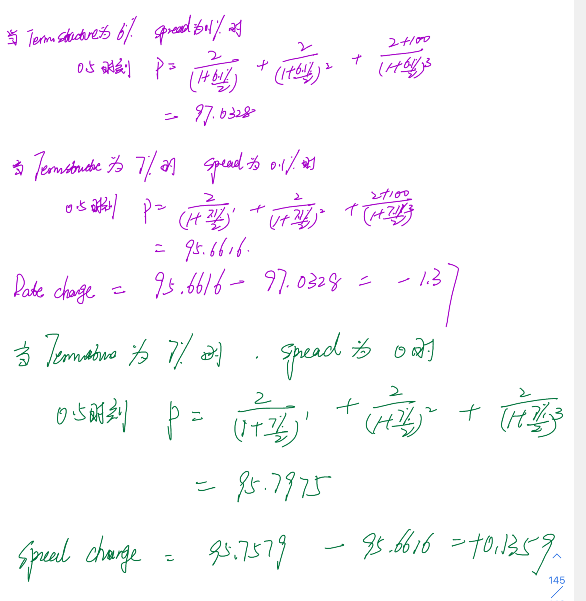 当 Term structure为 6% spread为0.1% 时
0.5时刻 P = 2/(1+6.1%/2) + 2/(1+6.1%/2)^2 + 2+100/(1+6.1%/2)^3
= 97.0328
当 Term structure 为 7% 时 spread 为 0.1% 时
0.5时刻 P = 2/(1+7.1%/2)^1 + 2/(1+7.1%/2)^2 + 2+100/(1+7.1%/2)^3
= 95.6616.
Rate change = 95.6616 - 97.0328 = -1.37
当 Term structure 为 7% 时 . spread 为 0 时
0.5时刻 P = 2/(1+7%/2)^1 + 2/(1+7%/2)^2 + 2/(1+7%/2)^3
= 95.7975
spread change = 95.7579 - 95.6616 = +0.1359
145